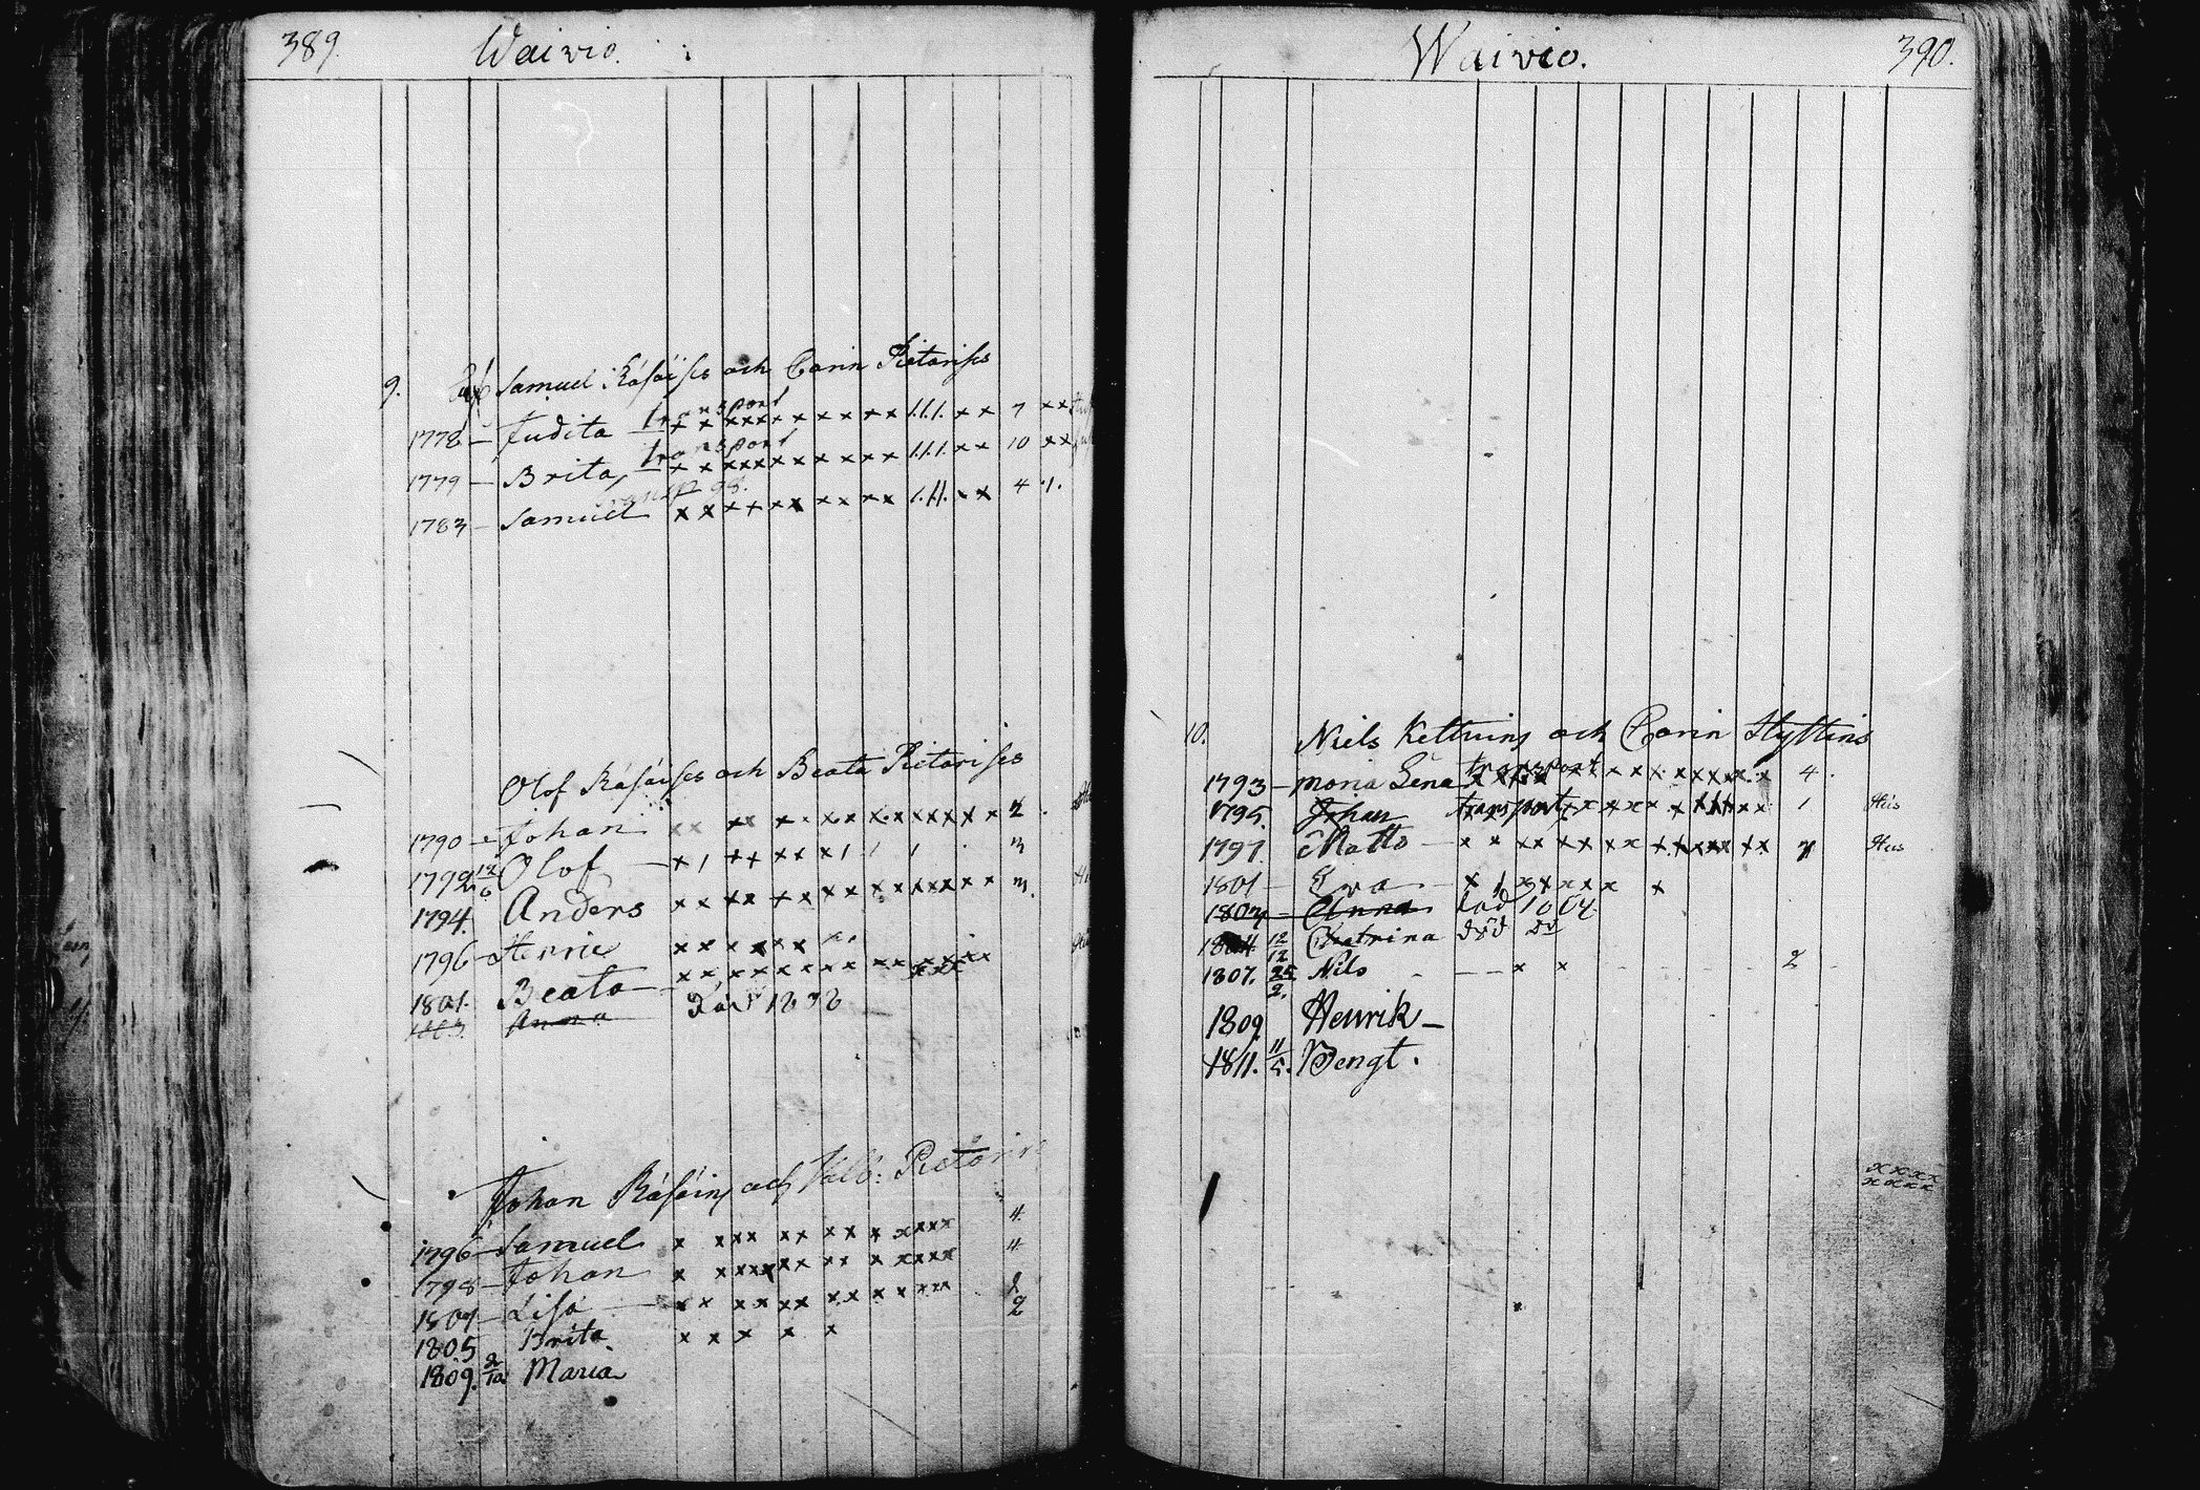 389.
Waivio.
9. Samuel Räsäises och Carin Pietarises
transport
1778 – Judita x x xxxx x x x x x x 1.1.1. x x 7 x x
transport
1779 – Brita x x xxxx x x x x x x 1.1.1. x x 10 x x
1783 – Samuel x x x x x x x x x x 1.11. x x 4 .1.
Olof Räsäises och Beata Pietarises
1790 – Johan x x x x x x x x x x x x x x 2
1792 12/6 Olof – x 1 x x x x x 1 1 1 3
1794. Anders x x x x x x x x x x x x x x x 3.
1796 – Henric x x x x x x
1801. Beata x x x x x x x x x x x x x x x
1803. Anna Död 1808
Johan Räsäins och Valb: Pietarin
1796 – Samuel x xxx xx xx x xxxx 4.
1798 – Johan x xxxx xx xx x xxxx 4
1801 – Lisa xx xx xx xx x xxxx 2
1805 Brita x x x x x
1809. 2/10 Maria
Waivio.
390.
10. Niels Kettuins och Carin Hyttins
1793 – Maria Lena transport x x x x x x x x x x 4.
1795. Johan transport x x x x x x x x x 1 Hus
1797. Matts – x x x x x x x x x x x x x x 7 Hus
1801 – Eva – x 1 x x x x x x
1803 – Anna död 1804
1804 12/12 Catrina död do
1807. 25/2. Nils – – – x x 2
1809 Henrik –
1811. 11/5. Bengt.
x x x x
x x x x